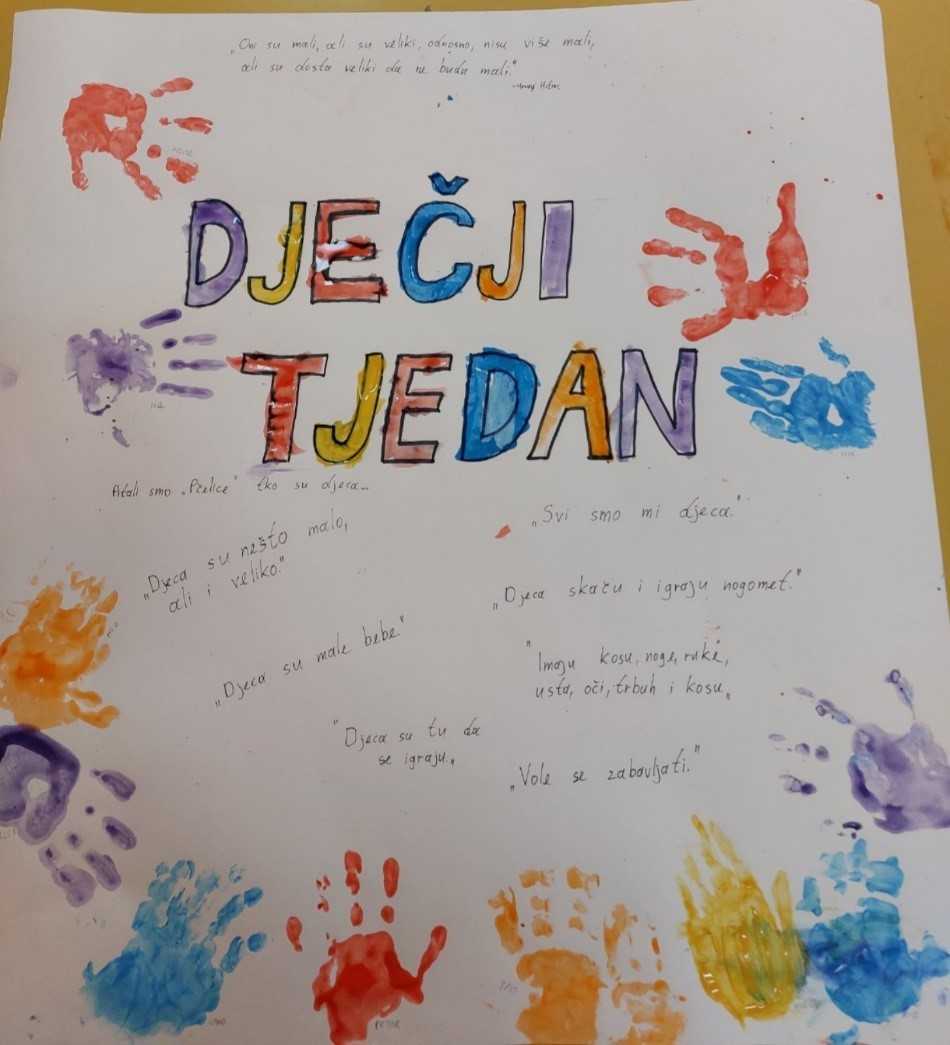 „Oni su mali, ali su veliki, odnosno, nisu više mali,
ali su dosta veliki da ne budu mali."
DJEČJI
TJEDAN
Pitali smo „Pčelice" tko su djeca...
„Djeca su nešto malo,
ali i veliko."
„Svi smo mi djeca."
„Djeca skaču i igraju nogomet."
„Djeca su male bebe."
"Imaju kosu, noge, ruke,
usta, oči, trbuh i kosu„
"Djeca su tu da
se igraju„
„Vole se zabavljati."
PETAR